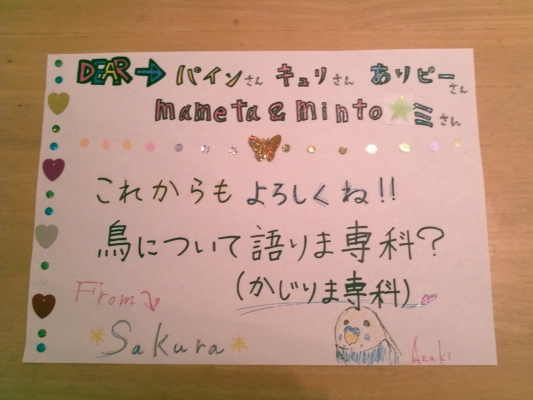 DEAR→ パインさん キュリさん ありピーさん
mameta & minto ★ミさん
これからもよろしくね!!
鳥について語りま専科?
(かじりま専科)
From
Sakura
Azuki